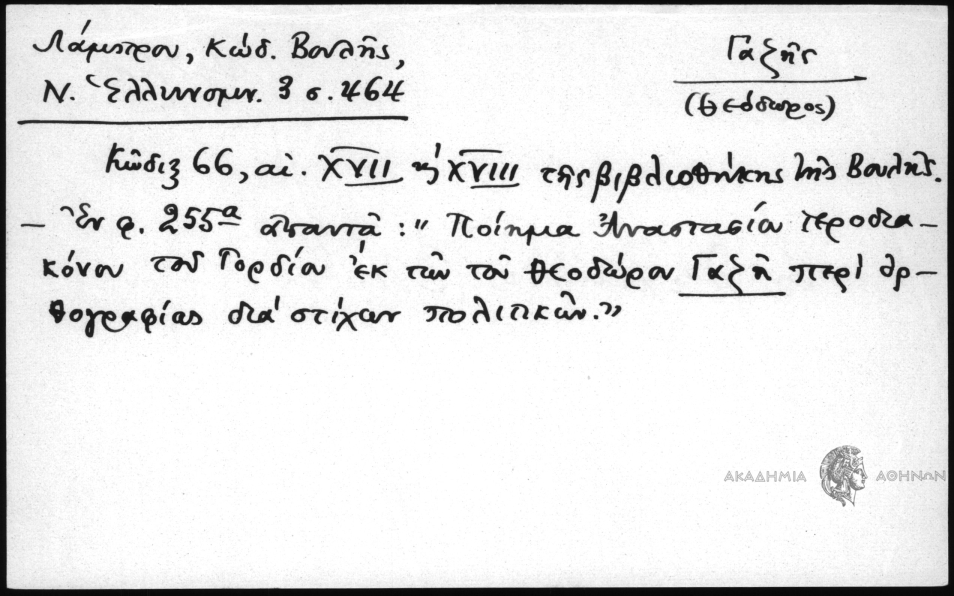 Λάμπρου, Κώδ. Βουλῆς,
Γαζῆς
Ν. Ἑλληνομν. 3 σ. 464
(Θεόδωρος)
Κῶδιξ 66, αἰ. XVII ἢ XVIII τῆς βιβλιοθήκης τῆς Βουλῆς.
– Ἐν φ. 255α ἀπαντᾷ : „ Ποίημα Ἀναστασίου ἱεροδια–
κόνου τοῦ Γορδίου ἐκ τῶν τοῦ Θεοδώρου Γαζῆ περὶ ὀρ–
θογραφίας διὰ στίχων πολιτικῶν.”
ΑΚΑΔΗΜΙΑ ΑΘΗΝΩΝ